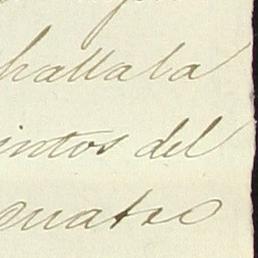 hallaba
intos del
cuatro